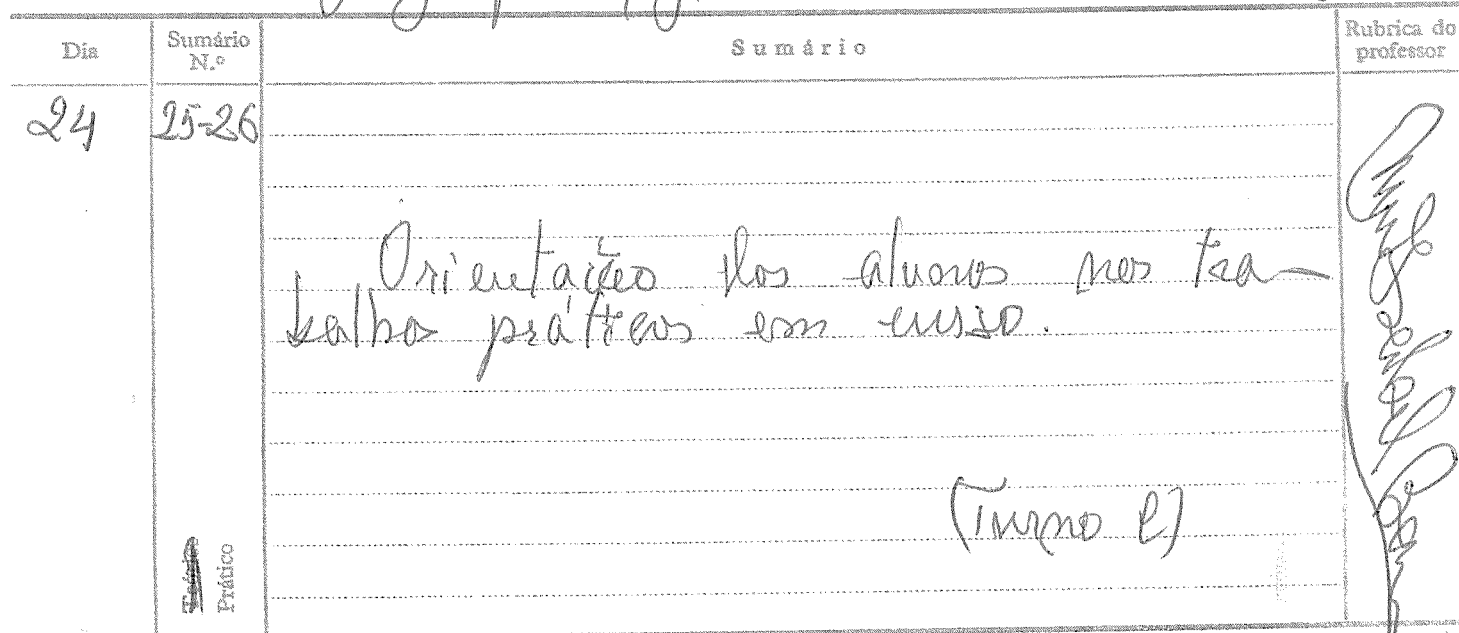 Dia
Sumário N.º
Sumário
Rubrica do professor
24
25-26
Orientações dos alunos nos tra-
balhos práticos em curso.
(Turno
Prático